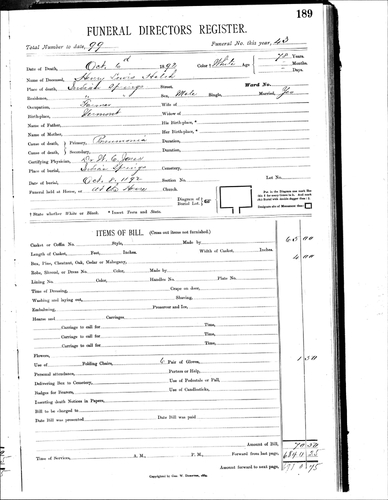 189
FUNERAL DIRECTORS REGISTER.
Total Number to date, 99 Funeral No. this year, 43
Date of Death, Oct 6th 1892 Color White Age 78 Years
" Months
" Days.
Name of Deceased, Henry Lewis Hatch
Place of death, Indian Springs Street, Ward No.
Residence, " Sex, Male Single, Married, Yes
Occupation, Farmer Wife of
Birthplace, Vermont Widow of
Name of Father, His Birthplace, *
Name of Mother, Her Birthplace, *
Cause of death, Primary, Pneumonia Duration,
Cause of death, Secondary, Duration,
Certifying Physician, Dr
Place of burial, Indian Springs Cemetery,
Date of burial, Oct. 8, 1892 Lot No.
Funeral held at House, at Church.
Diagram of Burial Lot,
Designate site of Monument thus
‡ State whether White or Black. * Insert Town and State.
ITEMS OF BILL. (Cross out items not furnished.)
Casket or Coffin No. Style, Made by 65 00
Length of Casket, Feet, Inches. Width of Casket, Inches.
Box, Pine, Chestnut, Oak, Cedar or Mahogany, 4 00
Robe, Shroud, or Dress No. Color, Made by
Lining No. Color, Handles No. Plate No.
Time of Dressing, Crape on door,
Washing and laying out, Shaving,
Embalming, Preserver and Ice,
Hearse and Carriages.
Carriage to call for Time,
Carriage to call for Time,
Carriage to call for Time,
Flowers,
Use of Folding Chairs, 6 Pair of Gloves, 1 50
Personal attendance, Porters or Help,
Delivering Box to Cemetery, Use of Pedestals or Pall,
Badges for Bearers, Use of Candlesticks,
Inserting death Notices in Papers,
Bill to be charged to
Date Bill was presented Date Bill was paid
Amount of Bill, 70 50
Time of Services, A. M., P. M., Forward from last page,
Amount forward to next page,